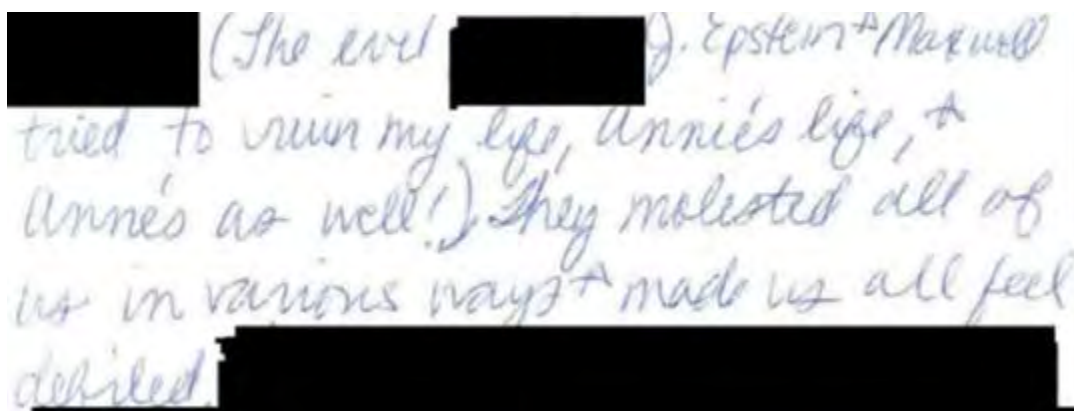 (The evil J. Epstein + Maxwell
tried to ruin my life, Annie's life, +
Anne's as well!). They molested all of
us in various ways + made us all feel
defiled.